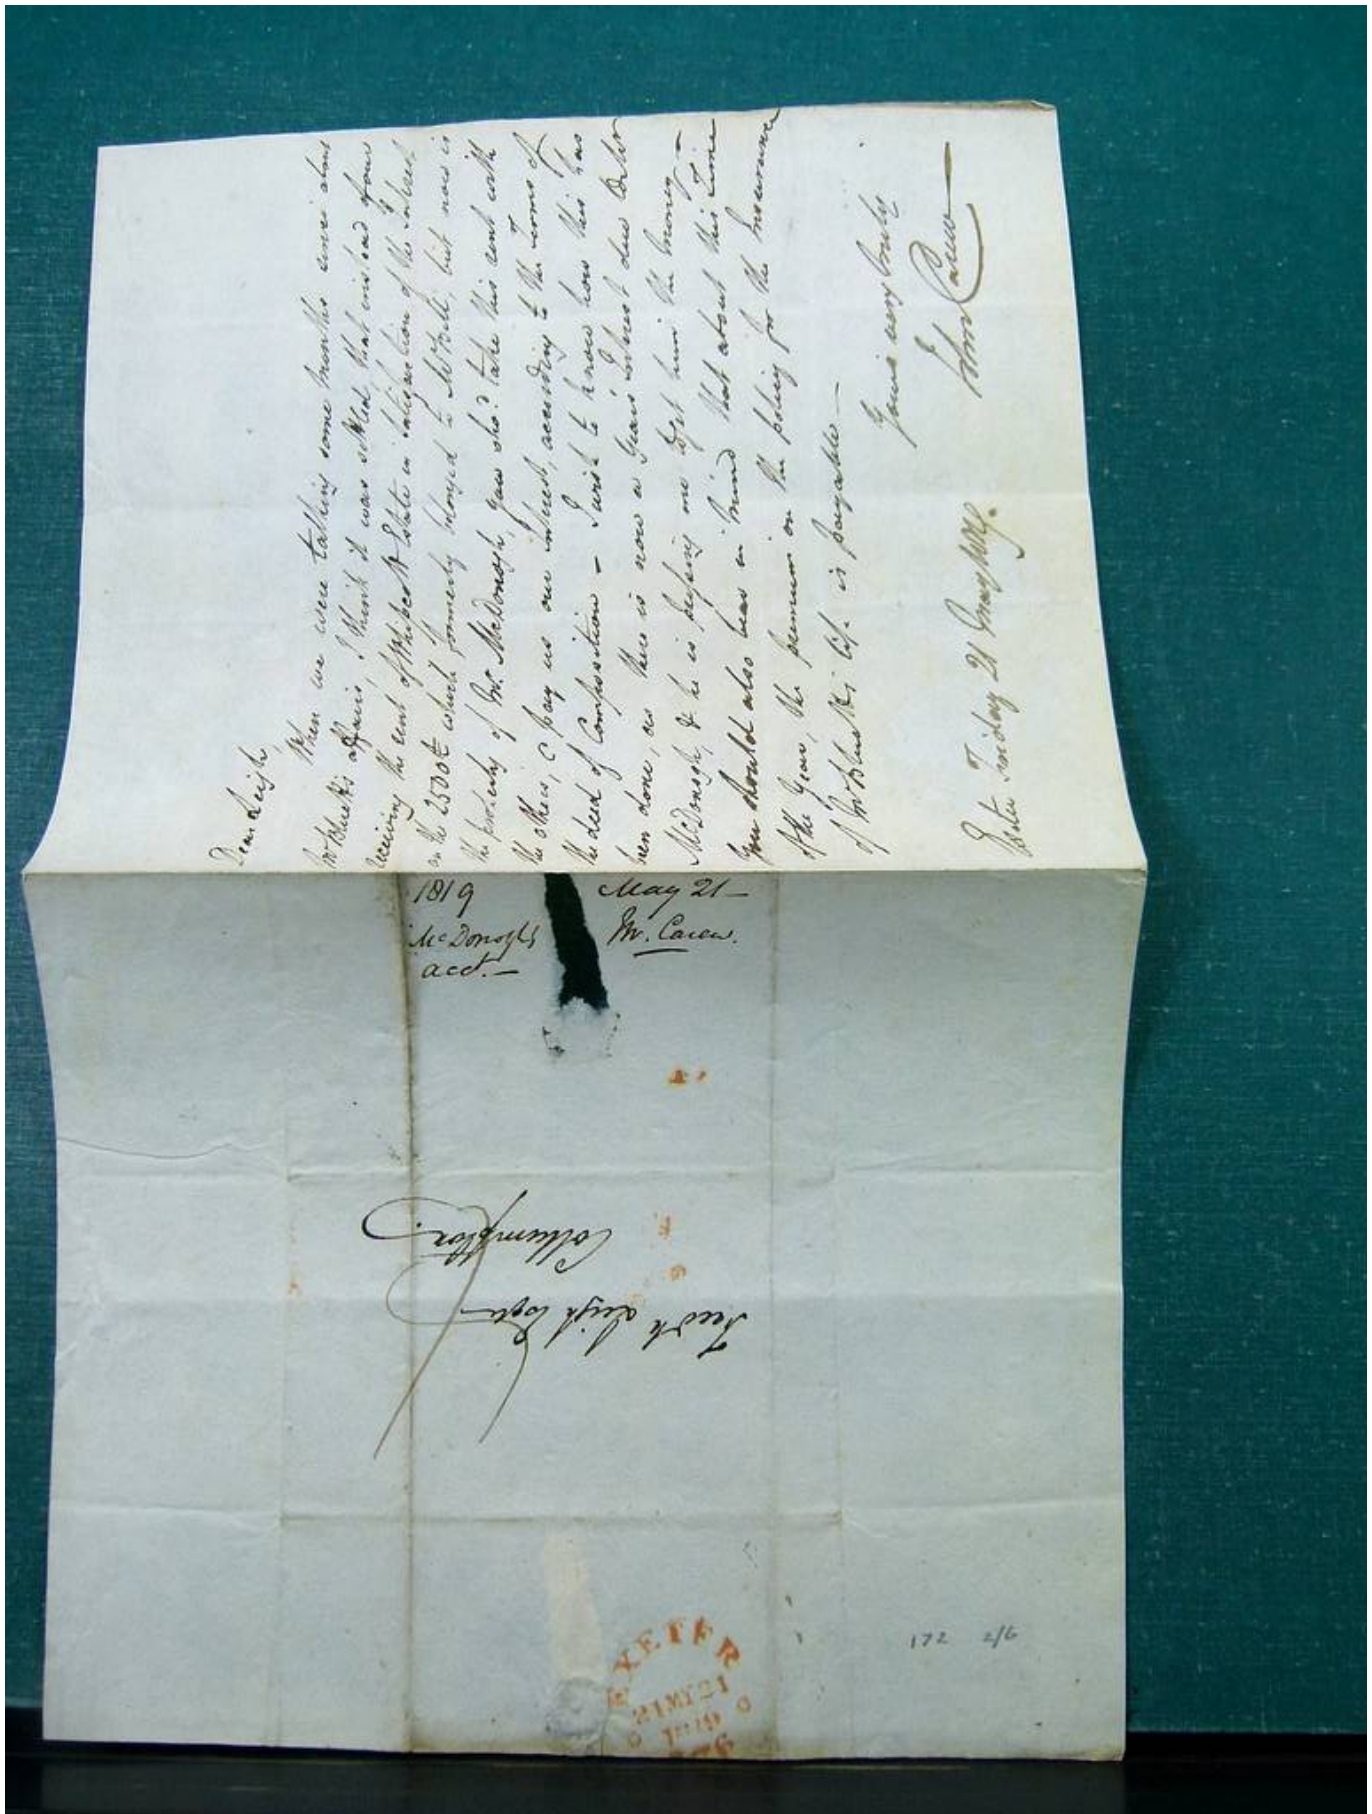 Dear Leigh,
When we were talking some months since about
Mr Bluett's affairs, I think it was settled, that instead of your
receiving the rent of Estate in satisfaction of the Interest
on the 2500£ which formerly belonged to Mr Fell, but now is
the property of Mr. McDonogh, you sho.d take this rent with
the others, & pay us our interest, according to the Terms of
the deed of Composition – I wish to know how this has
been done, as there is now a Years Interest due
McDonogh, & he is pressing me to get him the Money –
You should also bear in Mind that about this Time
of the Year, the premium on the policy for the Insurance
of Mr Bluett's life is payable –
Yours very truly
John Carew
Exeter Friday 21 May 1819.
1819 May 21 –
McDonogh's Mr. Carew.
acct. –
Fredk Leigh Esqre
Collumpton.
EXETER
21 MY 21
1819
172 2/6